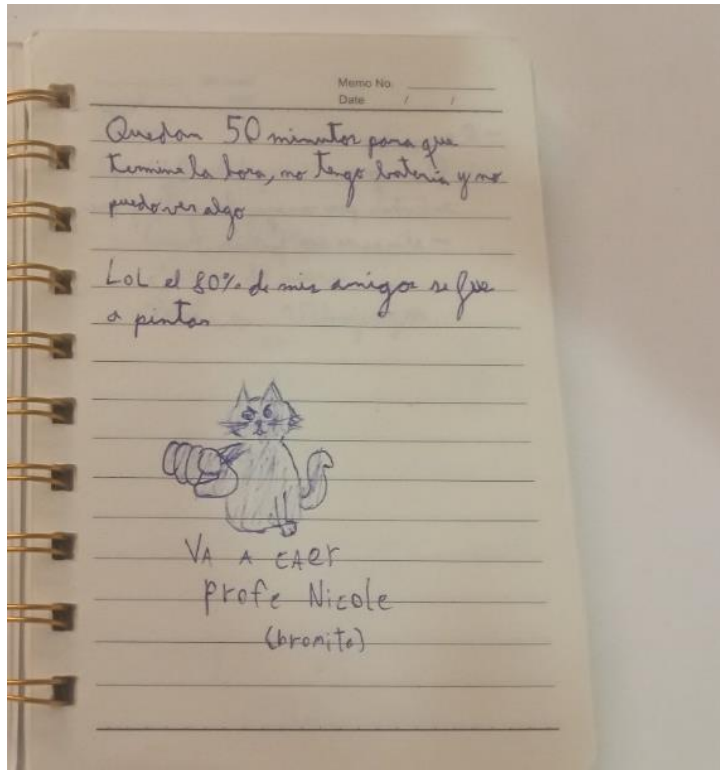 Memo No.
Date / /
Quedan 50 minutos para que
termine la hora, no tengo bateria y no
puedo ver algo
LoL el 80% de mis amigos se fue
a pintar
VA A CAer
profe Nicole
(bromita)